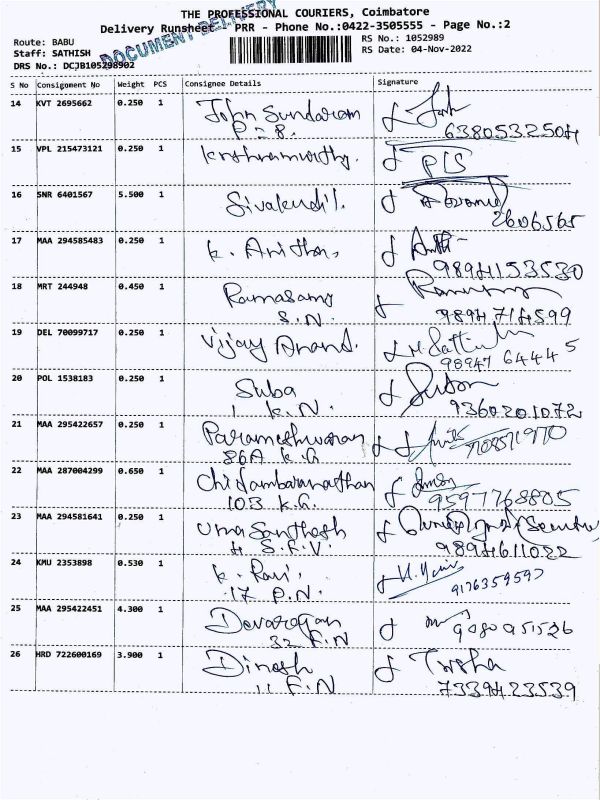 THE PROFESSIONAL COURIERS, Coimbatore
Delivery Runsheet - PRR - Phone No.:0422-3505555 - Page No.:2
DOCUMENT DELIVERY
Route: BABU RS No.: 1052989
Staff: SATHISH RS Date: 04-Nov-2022
DRS No.: DCJB105298902
S No Consignment No Weight PCS Consignee Details Signature
14 KVT 2695662 0.250 1 John Sundaram
P-8. 6380532504
15 VPL 215473121 0.250 1 Krishnamoorthy.
16 SNR 6401567 5.500 1 Sivakudil.
2606565
17 MAA 294585483 0.250 1 K. Anitha,
9894153530
18 MRT 244948 0.450 1 Ramasamy
S.N. 9894714599
19 DEL 70099717 0.250 1 Vijay Anand.
98947 64445
20 POL 1538183 0.250 1 Suba
1 K.N. 9360201072
21 MAA 295422657 0.250 1 Parameshwaran
86A K.G
22 MAA 287004299 0.650 1 Chidambaranathan
103 K.G. 9597768805
23 MAA 294581641 0.250 1 Uma Santhosh
4 S.F.V. 9894611022
24 KMU 2353898 0.530 1 K. Ravi,
17 P.N. 9176359597
25 MAA 295422451 4.300 1 Devarajan
32 F.N 9080951526
26 HRD 722600169 3.900 1 Dinesh Trisha
11 F.N 7339423539